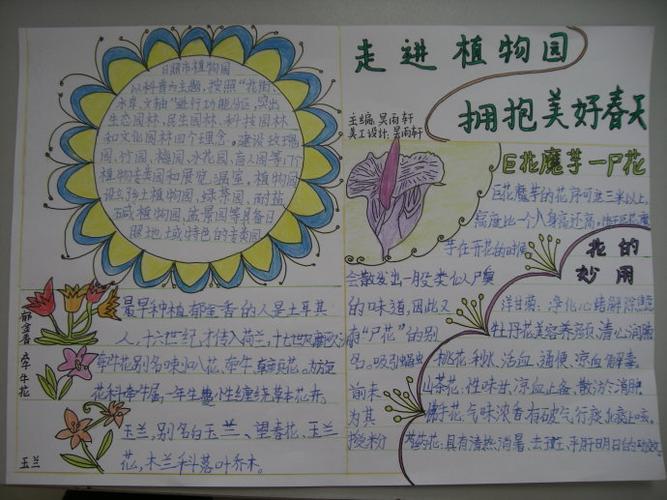 走进植物园
拥抱美好春天
主编：吴雨轩
美工设计：吴雨轩
日照市植物园
以科普为主题，按照“北街、
水岸、文轴”进行功能分区，突出
生态园林、民生园林、科技园林
和文化园林四个理念。建设玫瑰
园、竹园、梅园、水花园、盲人园等17个
植物专类园和展览温室。植物园
设乡土植物园、绿茶园、耐盐
碱植物园、盆景园等具备日
照地域特色的专类园
巨花魔芋—尸花
巨花魔芋的花序可达三米以上，
高度比一个人身高还高。
芋在开花的时候
会散发出一股类似人尸臭
的味道，因此又
有“尸花”的别
名。吸引蝇虫
前来
为其
授粉
花的
妙用
洋甘菊：净化心绪解除
牡丹花美容养颜，清心润肺
桃花：利水、活血、通便、凉血解毒
山茶花：性味甘、凉血止血、散淤消肿
佛手花：气味浓香有破气行痰
具有清热、消暑、平肝明目的功效
郁金香
最早种植郁金香的人是土耳其
人，十六世纪，才传入荷兰，十七世纪
牵牛花
牵牛花别名喇叭花、牵牛、朝颜花。为旋
花科牵牛属，一年生蔓性缠绕草本花卉。
玉兰
玉兰，别名白玉兰、望春花、玉兰
花，木兰科落叶乔木。